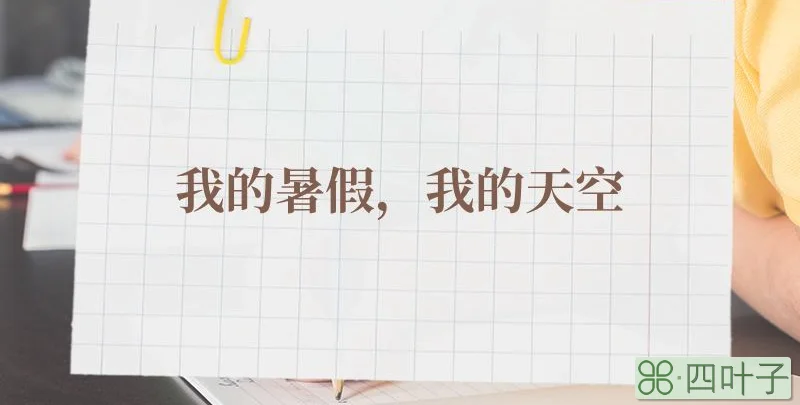 我的暑假，我的天空
四叶子